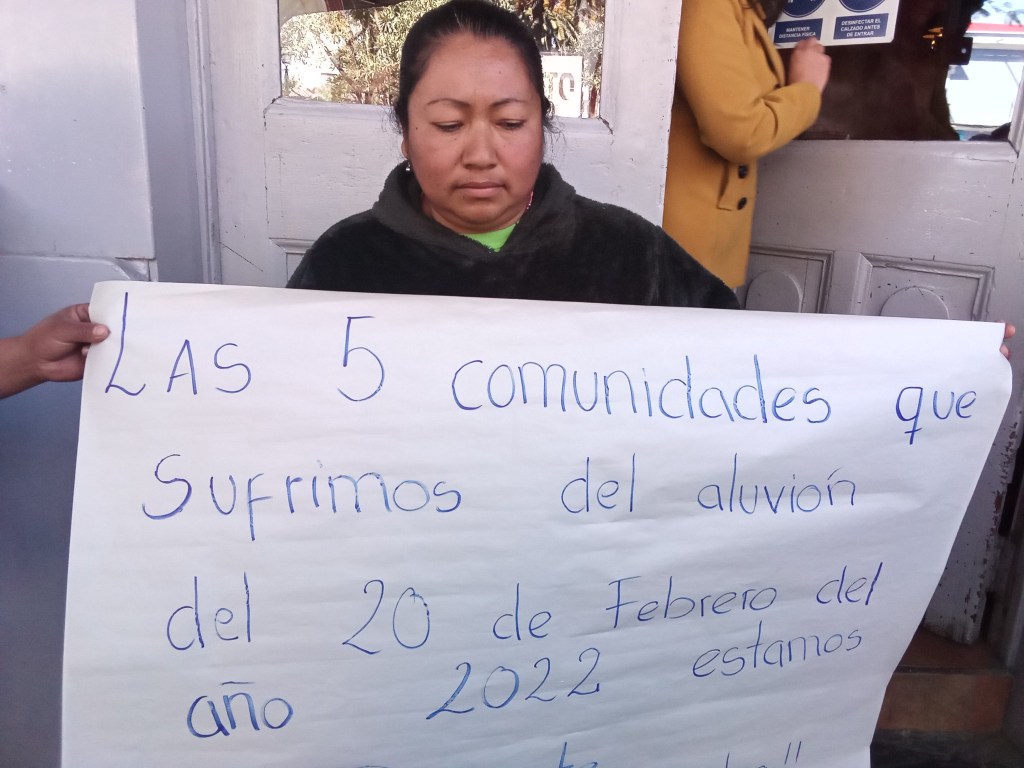 MANTENER
DISTANCIA FISICA
DESINFECTAR EL
CALZADO ANTES
DE ENTRAR
LAS 5 comunidades que
Sufrimos del aluvión
del 20 de Febrero del
año 2022 estamos